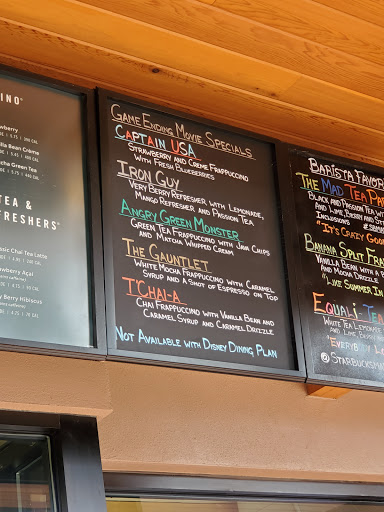 INO®
wberry
DE | 5.45 | 350 CAL
lla Bean Crème
DE | 5.45 | 400 CAL
tcha Green Tea
TEA &
EFRESHERS®
ssic Chai Tea Latte
wberry Açaí
y Berry Hibiscus
Game Ending Movie Specials
Captain USA
Strawberry and Creme Frappuccino
With Fresh Blueberries
Iron Guy
Very Berry Refresher with Lemonade,
Mango Refresher and Passion Tea
Angry Green Monster
Green Tea Frappuccino with Java Chips
and Matcha Whipped Cream
The Gauntlet
White Mocha Frappuccino with Caramel
Syrup and a Shot of Espresso on Top
T'Chai-a
Chai Frappuccino with Vanilla Bean and
Caramel Syrup and Caramel Drizzle
Not Available with Disney Dining Plan
Barista Favor
The Mad Tea Par
Black and Passion Tea
and Lime, Berry and St
Inclusions
#It's Crazy Goo
Banana Split Fra
Vanilla Bean with a
and Mocha Drizzle
"Like Summer In
Equali-Tea
White Tea Lemonade
and Lime,
"Everybo
@Starbucksma